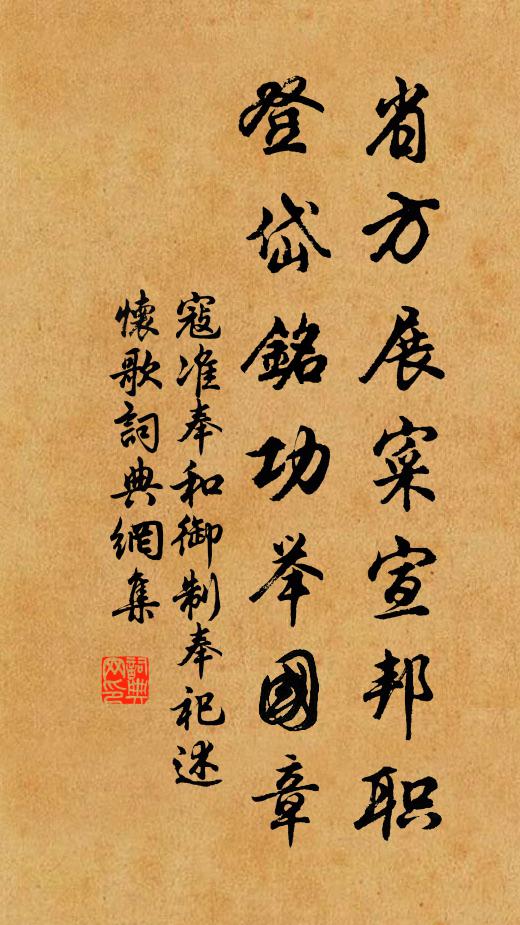 省方展寀宣邦职
登岱銘功举國章
寇准奉和御制奉祀述
懷歌詞典網集
詞典网印